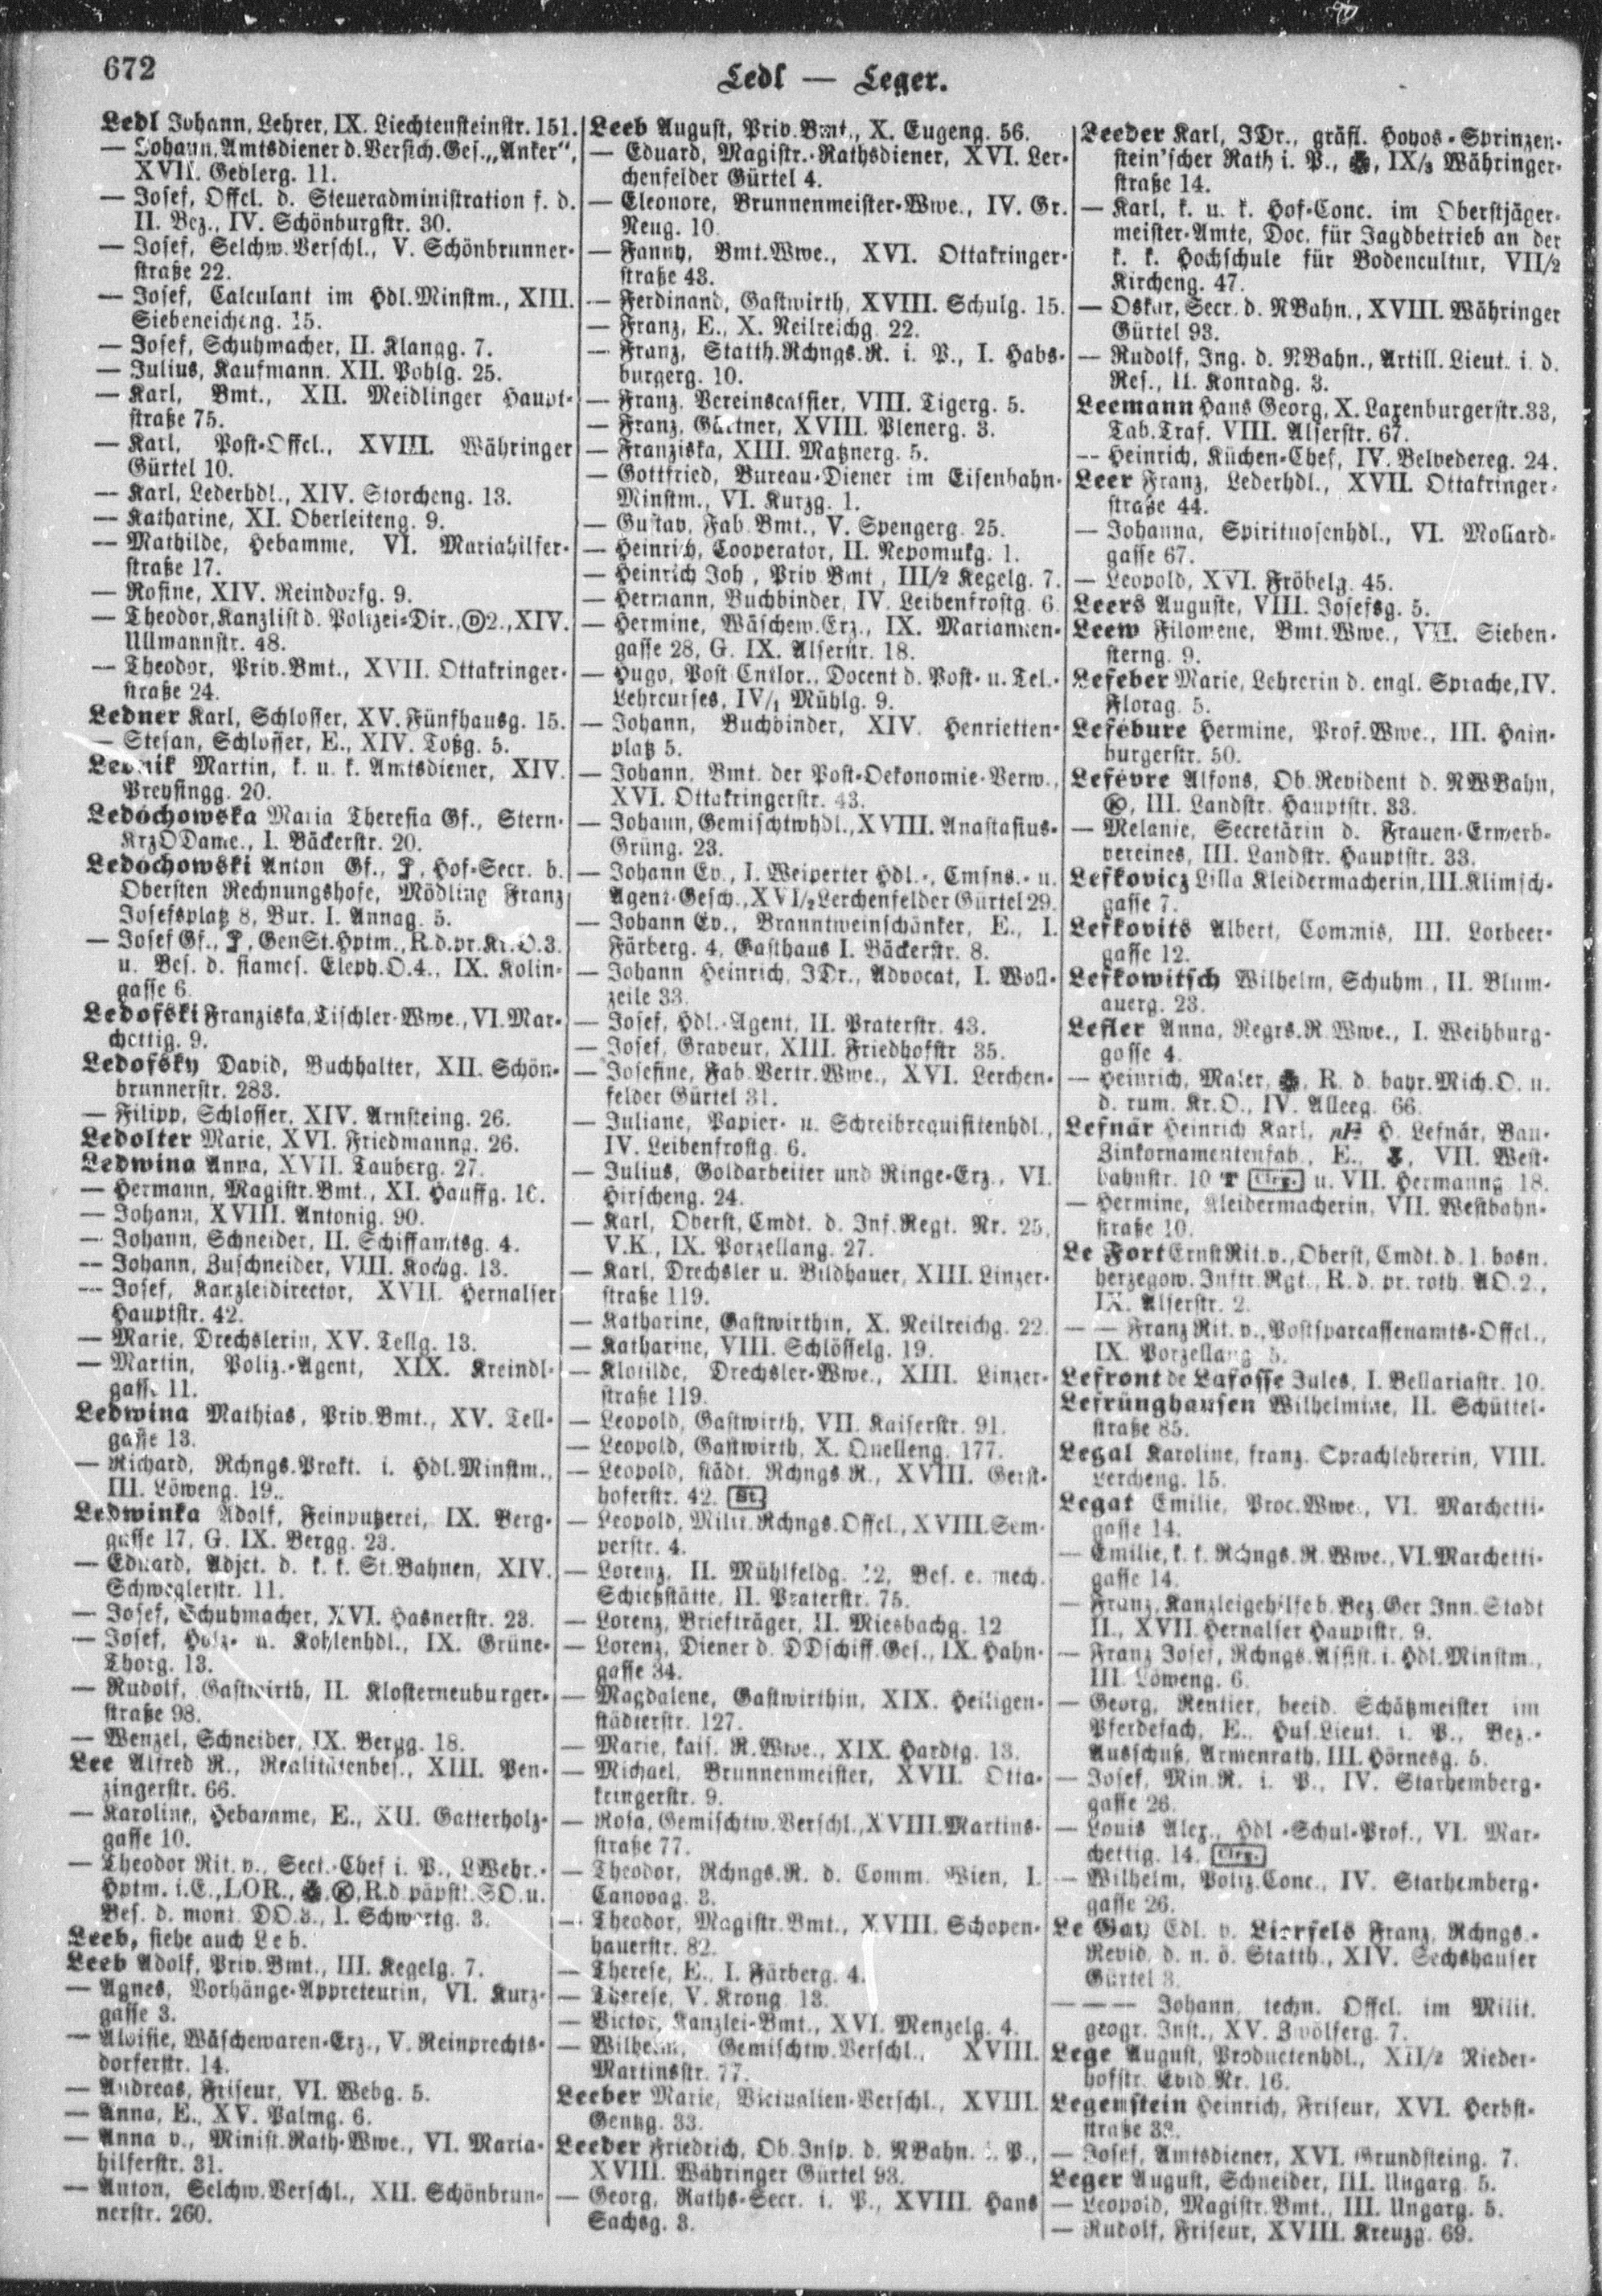 672
Ledl — Leger.
Ledl Johann, Lehrer, IX. Liechtensteinstr. 151.
— Johann, Amtsdiener d. Versich. Ges. „Anker“,
XVII. Geblerg. 11.
— Josef, Offcl. d. Steueradministration f. d.
II. Bez., IV. Schönburgstr. 30.
— Josef, Selchw. Verschl., V. Schönbrunner-
straße 22.
— Josef, Calculant im Hdl. Minstm., XIII.
Siebeneicheng. 15.
— Josef, Schuhmacher, II. Klangg. 7.
— Julius, Kaufmann. XII. Pohlg. 25.
— Karl, Bmt., XII. Meidlinger Haupt-
straße 75.
— Karl, Post-Offcl., XVIII. Währinger
Gürtel 10.
— Karl, Lederhdl., XIV. Storcheng. 13.
— Katharine, XI. Oberleiteng. 9.
— Mathilde, Hebamme, VI. Mariahilfer-
straße 17.
— Rosine, XIV. Reindorfg. 9.
— Theodor, Kanzlist d. Polizei-Dir., Ⓓ2., XIV.
Ullmannstr. 48.
— Theodor, Priv. Bmt., XVII. Ottakringer-
straße 24.
Ledner Karl, Schlosser, XV. Fünfhausg. 15.
— Stefan, Schlosser, E., XIV. Toßg. 5.
Lednik Martin, k. u. k. Amtsdiener, XIV.
Preysingg. 20.
Ledóchowska Maria Theresia Gf., Stern-
KrzODame., I. Bäckerstr. 20.
Ledochowski Anton Gf., Hof-Secr. b.
Obersten Rechnungshofe, Mödling Franz
Josefsplatz 8, Bur. I. Annag. 5.
— Josef Gf., GenSt. Hptm., R. d. pr. Kr. O. 3.
u. Bes. d. siames. Eleph. O. 4., IX. Kolin-
gasse 6.
Ledofski Franziska, Tischler-Wwe., VI. Mar-
chettig. 9.
Ledofsky David, Buchhalter, XII. Schön-
brunnerstr. 283.
— Filipp, Schlosser, XIV. Arnsteing. 26.
Ledolter Marie, XVI. Friedmanng. 26.
Ledwina Anna, XVII. Tauberg. 27.
— Hermann, Magistr. Bmt., XI. Hauffg. 10.
— Johann, XVIII. Antonig. 90.
— Johann, Schneider, II. Schiffamtsg. 4.
— Johann, Zuschneider, VIII. Kochg. 13.
— Josef, Kanzleidirector, XVII. Hernalser
Hauptstr. 42.
— Marie, Drechslerin, XV. Tellg. 13.
— Martin, Poliz.-Agent, XIX. Kreindl-
gasse 11.
Ledwina Mathias, Priv. Bmt., XV. Tell-
gasse 13.
— Richard, Rchngs. Prakt. i. Hdl. Minstm.,
III. Löweng. 19.
Ledwinka Adolf, Feinputzerei, IX. Berg-
gasse 17, G. IX. Bergg. 23.
— Eduard, Adjct. d. k. k. St. Bahnen, XIV.
Schweglerstr. 11.
— Josef, Schuhmacher, XVI. Hasnerstr. 23.
— Josef, Holz- u. Kohlenhdl., IX. Grüne-
Thorg. 13.
— Rudolf, Gastwirth, II. Klosterneuburger-
straße 98.
— Wenzel, Schneider, IX. Bergg. 18.
Lee Alfred R., Realitätenbes., XIII. Pen-
zingerstr. 66.
— Karoline, Hebamme, E., XII. Gatterholz-
gasse 10.
— Theodor Rit. v., Sect.-Chef i. P., LWehr.-
Hptm. i. E., LOR., Ⓚ, R. d. päpstl. SO. u.
Bes. d. mont. DO. 3., I. Schwartg. 3.
Leeb, siehe auch Leb.
Leeb Adolf, Priv. Bmt., III. Kegelg. 7.
— Agnes, Vorhänge-Appreteurin, VI. Kurz-
gasse 3.
— Aloisie, Wäschewaren-Erz., V. Reinprechts-
dorferstr. 14.
— Andreas, Friseur, VI. Webg. 5.
— Anna, E., XV. Palmg. 6.
— Anna v., Minist. Rath-Wwe., VI. Maria-
hilferstr. 31.
— Anton, Selchw. Verschl., XII. Schönbrun-
nerstr. 260.
Leeb August, Priv. Bmt., X. Eugeng. 56.
— Eduard, Magistr.-Rathsdiener, XVI. Ler-
chenfelder Gürtel 4.
— Eleonore, Brunnenmeister-Wwe., IV. Gr.
Neug. 10.
— Fanny, Bmt. Wwe., XVI. Ottakringer-
straße 43.
— Ferdinand, Gastwirth, XVIII. Schulg. 15.
— Franz, E., X. Neilreichg. 22.
— Franz, Statth. Rchngs. R. i. P., I. Habs-
burgerg. 10.
— Franz, Vereinscassier, VIII. Tigerg. 5.
— Franz, Gärtner, XVIII. Plenerg. 3.
— Franziska, XIII. Matznerg. 5.
— Gottfried, Bureau-Diener im Eisenbahn-
Minstm., VI. Kurzg. 1.
— Gustav, Fab. Bmt., V. Spengerg. 25.
— Heinrich, Cooperator, II. Nepomukg. 1.
— Heinrich Joh., Priv. Bmt., III/2 Kegelg. 7.
— Hermann, Buchbinder, IV. Leibenfrostg. 6.
— Hermine, Wäschew. Erz., IX. Mariannen-
gasse 28, G. IX. Alserstr. 18.
— Hugo, Post Cntlor., Docent d. Post- u. Tel.-
Lehrcurses, IV/1 Mühlg. 9.
— Johann, Buchbinder, XIV. Henrietten-
platz 5.
— Johann, Bmt. der Post-Oekonomie-Verw.,
XVI. Ottakringerstr. 43.
— Johann, Gemischtwhdl., XVIII. Anastasius-
Grüng. 23.
— Johann Ev., I. Weiperter Hdl.-, Cmsns.- u.
Agent.-Gesch., XVI/2 Lerchenfelder Gürtel 29.
— Johann Ev., Branntweinschänker, E., I.
Färberg. 4, Gasthaus I. Bäckerstr. 8.
— Johann Heinrich, JDr., Advocat, I. Woll-
zeile 33.
— Josef, Hdl.-Agent, II. Praterstr. 43.
— Josef, Graveur, XIII. Friedhofstr. 35.
— Josefine, Fab. Vertr. Wwe., XVI. Lerchen-
felder Gürtel 31.
— Juliane, Papier- u. Schreibrequisitenhdl.,
IV. Leibenfrostg. 6.
— Julius, Goldarbeiter und Ringe-Erz., VI.
Hirscheng. 24.
— Karl, Oberst, Cmdt. d. Inf. Regt. Nr. 25,
V.K., IX. Porzellang. 27.
— Karl, Drechsler u. Bildhauer, XIII. Linzer-
straße 119.
— Katharine, Gastwirthin, X. Neilreichg. 22.
— Katharine, VIII. Schlösselg. 19.
— Klotilde, Drechsler-Wwe., XIII. Linzer-
straße 119.
— Leopold, Gastwirth, VII. Kaiserstr. 91.
— Leopold, Gastwirth, X. Quelleng. 177.
— Leopold, städt. Rchngs. R., XVIII. Gerst-
hoferstr. 42. St.
— Leopold, Milit. Rchngs. Offcl., XVIII. Sem-
perstr. 4.
— Lorenz, II. Mühlfeldg. 12, Bes. e. mech.
Schießstätte, II. Praterstr. 75.
— Lorenz, Briefträger, II. Miesbachg. 12
— Lorenz, Diener d. DDschiff. Ges., IX. Hahn-
gasse 34.
— Magdalene, Gastwirthin, XIX. Heiligen-
städterstr. 127.
— Marie, kais. R. Wwe., XIX. Hardtg. 13.
— Michael, Brunnenmeister, XVII. Otta-
kringerstr. 9.
— Rosa, Gemischtw. Verschl., XVIII. Martins-
straße 77.
— Theodor, Rchngs. R. d. Comm. Wien, I.
Canovag. 3.
— Theodor, Magistr. Bmt., XVIII. Schopen-
hauerstr. 82.
— Therese, E., I. Färberg. 4.
— Therese, V. Krong. 13.
— Victor, Kanzlei-Bmt., XVI. Menzelg. 4.
— Wilhelm, Gemischtw. Verschl., XVIII.
Martinsstr. 77.
Leeber Marie, Victualien-Verschl., XVIII.
Gentzg. 33.
Leeder Friedrich, Ob. Insp. d. NBahn. i. P.,
XVIII. Währinger Gürtel 93.
— Georg, Raths-Secr. i. P., XVIII. Hans
Sachsg. 3.
Leeder Karl, JDr., gräfl. Hoyos-Sprinzen-
stein'scher Rath i. P., IX/3 Währinger-
straße 14.
— Karl, k. u. k. Hof-Conc. im Oberstjäger-
meister-Amte, Doc. für Jagdbetrieb an der
k. k. Hochschule für Bodencultur, VII/2
Kircheng. 47.
— Oskar, Secr. d. NBahn., XVIII. Währinger
Gürtel 93.
— Rudolf, Ing. d. NBahn., Artill. Lieut. i. d.
Res., II. Konradg. 3.
Leemann Hans Georg, X. Laxenburgerstr. 33,
Tab. Traf. VIII. Alserstr. 67.
— Heinrich, Küchen-Chef, IV. Belvedereg. 24.
Leer Franz, Lederhdl., XVII. Ottakringer-
straße 44.
— Johanna, Spirituosenhdl., VI. Mollard-
gasse 67.
— Leopold, XVI. Fröbelg. 45.
Leers Auguste, VIII. Josefsg. 5.
Leew Filomene, Bmt. Wwe., VII. Sieben-
sterng. 9.
Lefeber Marie, Lehrerin d. engl. Sprache, IV.
Florag. 5.
Lefébure Hermine, Prof. Wwe., III. Hain-
burgerstr. 50.
Lefèvre Alfons, Ob. Revident d. NWBahn,
Ⓚ, III. Landstr. Hauptstr. 33.
— Melanie, Secretärin d. Frauen-Erwerb-
vereines, III. Landstr. Hauptstr. 33.
Lefkovicz Lilla Kleidermacherin, III. Klimsch-
gasse 7.
Lefkovits Albert, Commis, III. Lorbeer-
gasse 12.
Lefkowitsch Wilhelm, Schuhm., II. Blum-
auerg. 23.
Lefler Anna, Regrs. R. Wwe., I. Weihburg-
gasse 4.
— Heinrich, Maler, R. d. bayr. Mich. O. u.
d. rum. Kr. O., IV. Alleeg. 66.
Lefnär Heinrich Karl, H. Lefnár, Bau-
Zinkornamentenfab., E., VII. West-
bahnstr. 10 u. VII. Hermanng 18.
— Hermine, Kleidermacherin, VII. Westbahn-
straße 10.
Le Fort Ernst Rit. v., Oberst, Cmdt. d. 1. bosn.
herzegow. Inftr. Rgt., R. d. pr. roth. AO. 2.,
IX. Alserstr. 2.
— — Franz Rit. v., Postsparcassenamts-Offcl.,
IX. Porzellang. 5.
Lefront de Lafosse Jules, I. Bellariastr. 10.
Lefrünghausen Wilhelmine, II. Schüttel-
straße 85.
Legal Karoline, franz. Sprachlehrerin, VIII.
Lercheng. 15.
Legat Emilie, Proc. Wwe., VI. Marchetti-
gasse 14.
— Emilie, k. k. Rchngs. R. Wwe., VI. Marchetti-
gasse 14.
— Franz, Kanzleigehilfe b. Bez. Ger. Inn. Stadt
II., XVII. Hernalser Hauptstr. 9.
— Franz Josef, Rchngs. Assist. i. Hdl. Minstm.,
III. Löweng. 6.
— Georg, Rentier, beeid. Schätzmeister im
Pferdefach, E., Hus. Lieut. i. P., Bez.-
Ausschuß, Armenrath, III. Hörnesg. 5.
— Josef, Min. R. i. P., IV. Starhemberg-
gasse 26.
— Louis Alex., Hdl.-Schul-Prof., VI. Mar-
chettig. 14. Clrg.
— Wilhelm, Poliz. Conc., IV. Starhemberg-
gasse 26.
Le Gay Edl. v. Lierfels Franz, Rchngs.-
Revid. d. n. ö. Statth., XIV. Sechshauser
Gürtel 3.
— — — Johann, techn. Offcl. im Milit.
geogr. Inst., XV. Zwölferg. 7.
Lege August, Productenhdl., XII/2 Nieder-
hofstr. Cvid. Nr. 16.
Legenstein Heinrich, Friseur, XVI. Herbst-
straße 33.
— Josef, Amtsdiener, XVI. Grundsteing. 7.
Leger August, Schneider, III. Ungarg. 5.
— Leopold, Magistr. Bmt., III. Ungarg. 5.
— Rudolf, Friseur, XVIII. Kreuzg. 69.